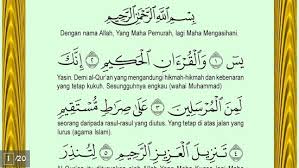 بِسْمِ اللَّهِ الرَّحْمَٰنِ الرَّحِيمِ
Dengan nama Allah, Yang Maha Pemurah, lagi Maha Mengasihani.
يسٓ ١ وَالْقُرْءَانِ الْحَكِيمِ ٢ إِنَّكَ
Yasin. Demi al-Qur'an yang mengandungi hikmah-hikmah dan kebenaran
yang tetap kukuh, Sesungguhnya engkau (wahai Muhammad)
لَمِنَ الْمُرْسَلِينَ ٣ عَلَىٰ صِرَاطٍ مُّسْتَقِيمٍ ٤
seorang daripada rasul-rasul yang diutus, Yang tetap di atas jalan yang
lurus (agama Islam).
تَنزِيلَ الْعَزِيزِ الرَّحِيمِ ٥ لِتُنذِرَ
1 / 20